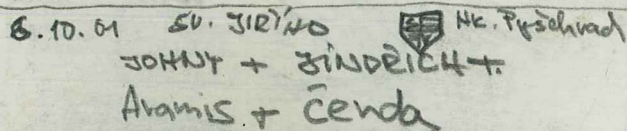 6.10.01 SV. JIŘÍHO HK. Pyšehrad
JOHNY + JINDŘICH +
Aramis + Čenda